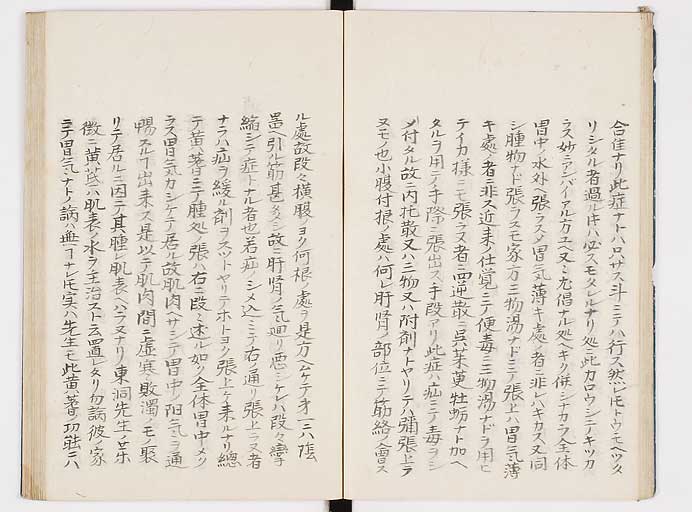 合住ナリ此症ナトハロハサス斗ニテハ行ス然レ𪜈トウモヘツタ
リシタル者過ル𪜈ハ必スモタレルナリ処ニ此カロウシニテキツカ
ラス妙ニアンバイアル方エヘ又ミ尤倡ナル処ヘキク併シナカラ全体
胃中ノ水外ヘ張ラスメ胃氣薄キ處ノ者ニ非レハキカス又同
シ腫物ナド張ラスモ家方三物湯ナドニテ張上ハ胃氣薄
キ處ノ者ニ非ス近来ノ仕覚ニテ便毒ニ三物湯ナドヲ用ヒ
テイカ様ニモ張ラヌ者ニ四逆散ニ呉茱萸牡蛎ナト加ヘ
タルヲ用テ手際ニ張出ス手段アリ此症ハ疝ニテ毒ヲシ
メ付タル故ニ内托散又ハ三物又ハ附剤ナトヤリテハ彌張上ラ
ヌモノ也小腹付根ノ處ハ何レ肝腎ノ部位ニテ筋絡ノ會ス
ル處故段々横腹ノヨク何根ノ處ヲ是方ヘムケテ才一ハ陰
器ヘ引ル筋甚多シ故ニ肝腎ノ氣廻リ悪シケレハ段々攣
縮シテ症トナル者也若疝ノシメ込ミニテ右ノ通リ張上ラヌ者
ナラハ疝ヲ緩ル剤ヲスツトヤリテホトヨク張上ケ来ルナリ總
テ黄蓍ニテ腫処ノ張ハ右ニ段々述ル如ク全体胃中メツ
ラス胃氣カシケテ居ル故肌肉ヘサシテ胃中ノ陽氣ヲ通
暢スルヿ出来ス是以テ肌肉ノ間ニ虚寒敗濁ノモノ聚
リテ居ルニ因テ其腫レ肌表ヘハラヌナリ東洞先生ノ薬
徴ニ黄芪ハ肌表ノ水ヲ主治スト云置レタリ勿論彼ノ家
ニテ胃氣ナトノ病ハ無ヿナレ𪜈実ハ先生モ此黄蓍ノ功能ハ